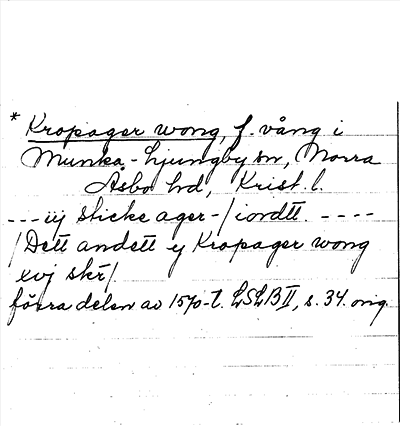 * Kropager wong, f. vång i
Munka-Ljungby sn, Norra
Åsbo hd, Krist. l.
--- iij sticke ager-/iordtt. ----
/Dett andett y Kropager wong
xvj skr/.
förra delen av 1570-t. LSLB II, s. 34. orig.